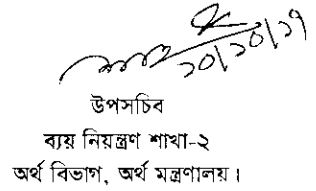 ১০/১০/১৭
উপসচিব
ব্যয় নিয়ন্ত্রণ শাখা-২
অর্থ বিভাগ, অর্থ মন্ত্রণালয়।